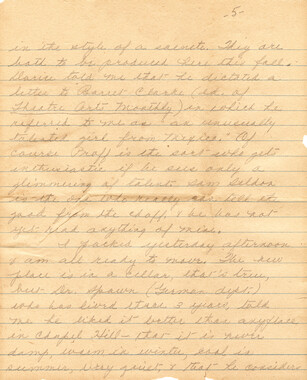 -5-
in the style of a sainete. They are
both to be produced here this fall.
told me that he dictated a
letter to Barrett Clarke (ed. of
Theatre Arts Monthly) in which he
referred to me as "an unusually
talented girl from Mexico." Of
course Proff is the sort who gets
enthusiastic if he sees only a
glimmering of talent. Sam Selden
is the one who really can tell the
from the chaff, & he has not
yet read anything of mine.
I packed yesterday afternoon
& am all ready to move. The new
place is in a cellar, that's true,
but Dr. Spawn (German dept.)
who has lived there 3 years, told
me he liked it better than anyplace
in Chapel Hill - that it is never
damp, warm in winter, cool in
summer, very quiet, & that he considers